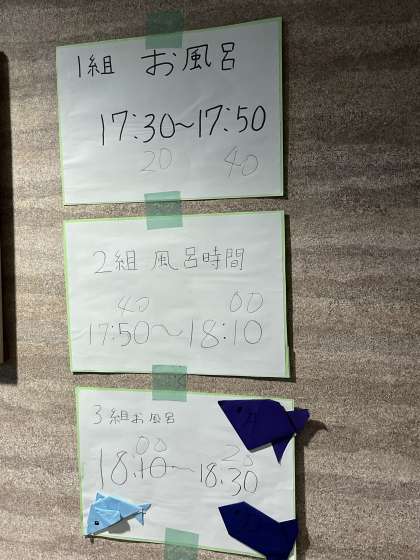 1組 お風呂
17:30~17:50
20 40
2組 風呂時間
40 00
17:50~18:10
3組お風呂
00 20
18:10~18:30